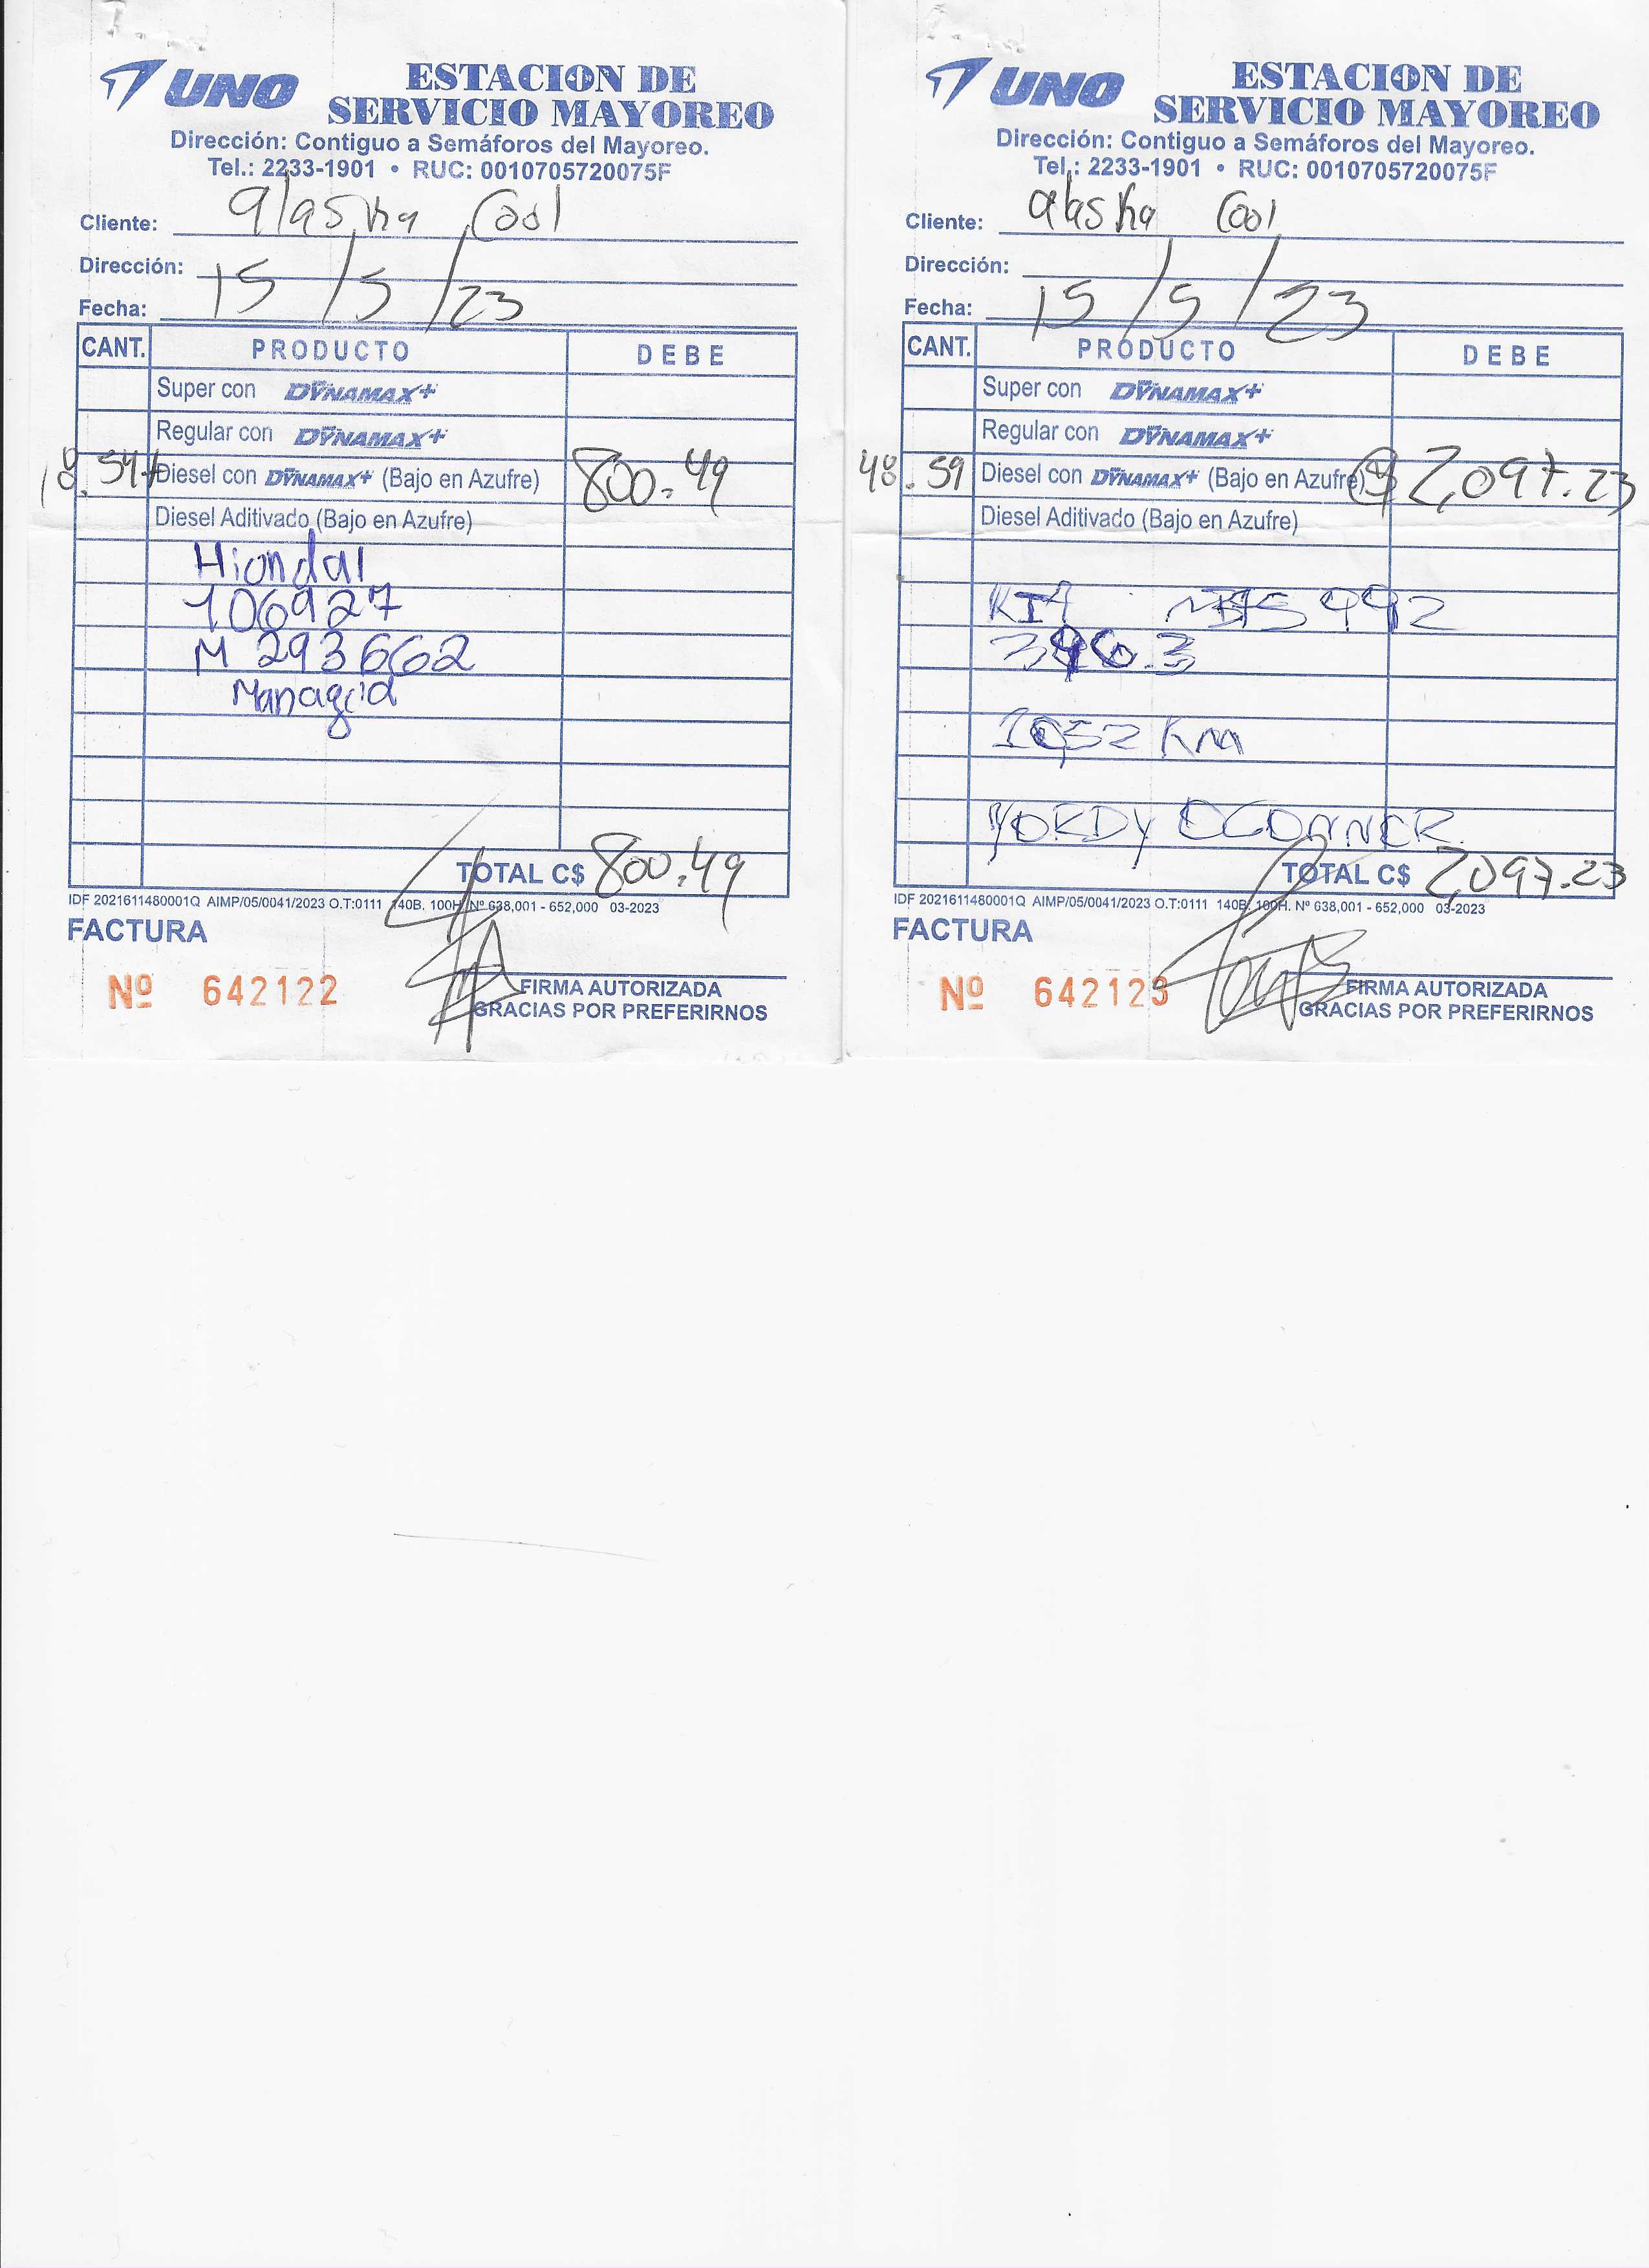 UNO ESTACION DE
SERVICIO MAYOREO
Dirección: Contiguo a Semáforos del Mayoreo.
Tel.: 2233-1901 • RUC: 0010705720075F
Cliente: alaska Cool
Dirección:
Fecha: 15/5/23
CANT. PRODUCTO DEBE
Super con DYNAMAX+
Regular con DYNAMAX+
18.54 Diesel con DYNAMAX+ (Bajo en Azufre) 800.49
Diesel Aditivado (Bajo en Azufre)
Hiondal
106927
M 293662
Managua
TOTAL C$ 800.49
IDF 2021611480001Q AIMP/05/0041/2023 O.T:0111 140B. 100H. Nº 638,001 - 652,000 03-2023
FACTURA
Nº 642122
FIRMA AUTORIZADA
GRACIAS POR PREFERIRNOS
UNO ESTACION DE
SERVICIO MAYOREO
Dirección: Contiguo a Semáforos del Mayoreo.
Tel.: 2233-1901 • RUC: 0010705720075F
Cliente: alaska Cool
Dirección:
Fecha: 15/5/23
CANT. PRODUCTO DEBE
Super con DYNAMAX+
Regular con DYNAMAX+
48.59 Diesel con DYNAMAX+ (Bajo en Azufre) 2,097.23
Diesel Aditivado (Bajo en Azufre)
KIA
1052 Km
YORDY OCONNOR
TOTAL C$ 2,097.23
IDF 2021611480001Q AIMP/05/0041/2023 O.T:0111 140B. 100H. Nº 638,001 - 652,000 03-2023
FACTURA
Nº 642123
FIRMA AUTORIZADA
GRACIAS POR PREFERIRNOS